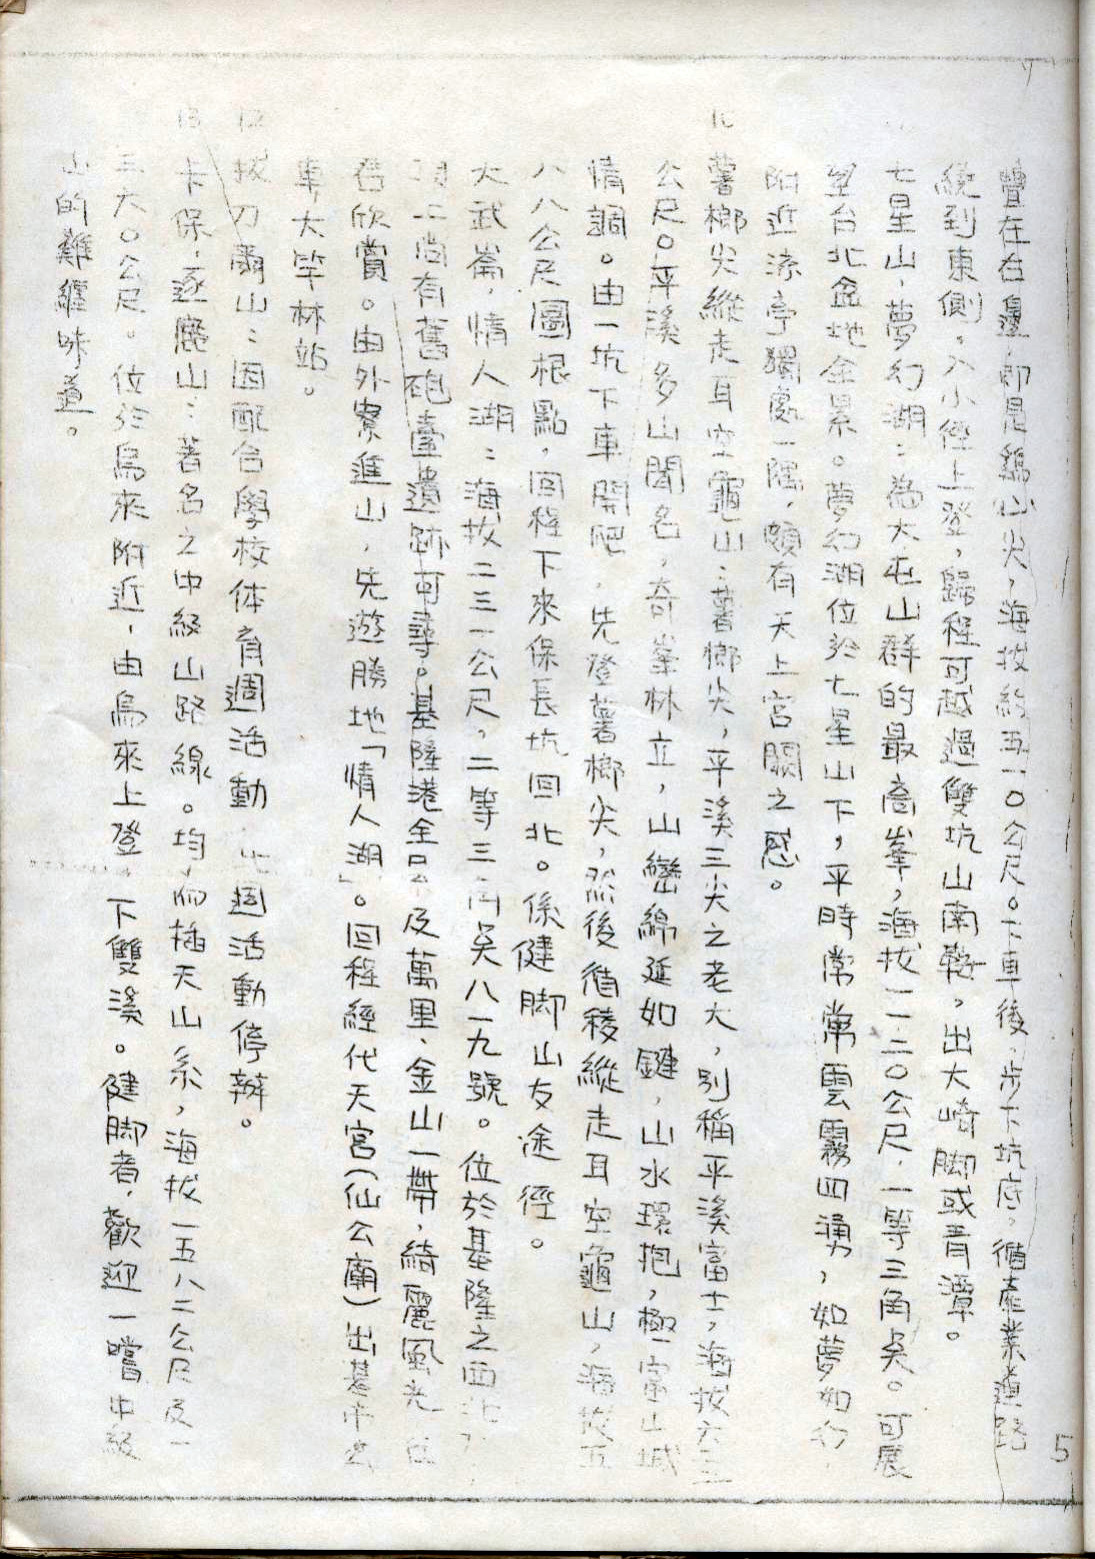 疊在右邊，即是鵝山尖，海拔約五一０公尺。下車後，步下坑底，循產業道路
繞到東側。入小徑上登，歸程可越過雙坑山南鞍，出大崎脚或青潭。
七星山，夢幻湖：為大屯山群的最高峯，海拔一一二０公尺，一等三角點。可展
望台北盆地全景。夢幻湖位於七星山下，平時常常雲霧四湧，如夢如幻
附近涼亭獨處一隅，頗有天上宮闕之感。
10 薯榔尖縱走耳空龜山：薯榔尖，平溪三尖之老大，別稱平溪富士，海拔六二
公尺。平溪多山聞名，奇峯林立，山巒綿延如鏈，山水環抱，極富山城
情調。由一坑下車開爬，先登薯榔尖，然後循稜縱走耳空龜山，海拔五
八八公尺圖根點，回程下來保長坑回北。係健脚山友途徑。
大武崙，情人湖：海拔二三一公尺，二等三角點八一九號。位於基隆之西北方，
頂上尚有舊砲臺遺跡可尋。基隆港全景及萬里、金山一帶，綺麗風光
君欣賞。由外寮進山，先遊勝地「情人湖」。回程經代天宮（仙公廟）出基市公
車大竿林站。
12 拔刀爾山：因配合學校体育週活動，此週活動停辦。
13 卡保，逐鹿山：著名之中級山路線。均屬插天山系，海拔一五八二公尺及一
三六０公尺。位於烏來附近，由烏來上登，下雙溪。健脚者，歡迎一嚐中級
山的難纏味道。
5